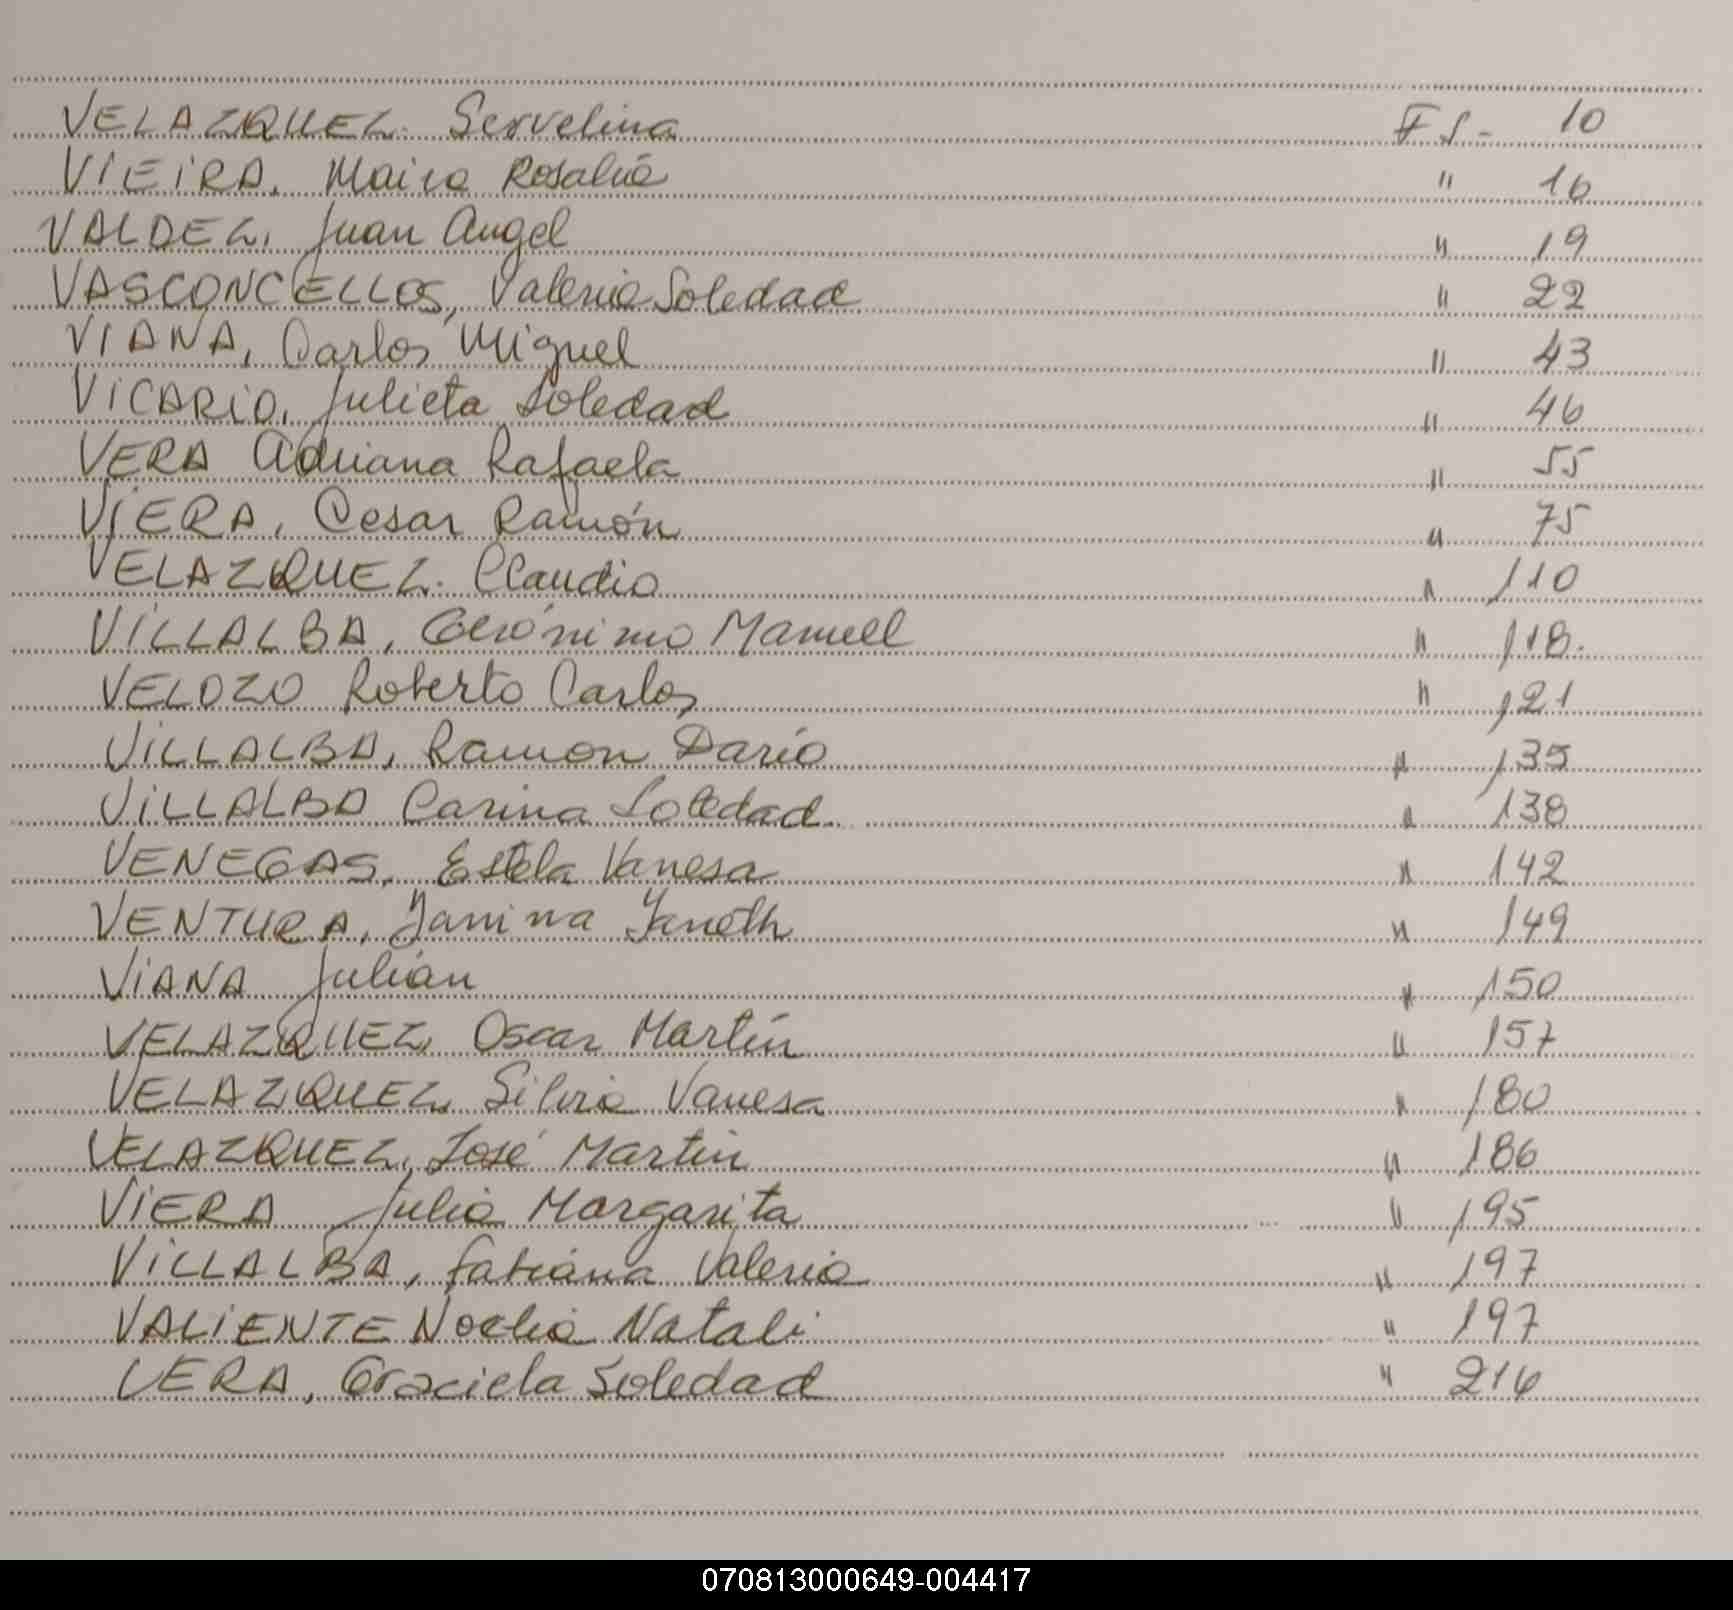 VELAZQUEZ. Servelina Fs.- 10
VIEIRA, Maira Rosalia " 16
VALDEZ, Juan Angel " 19
VASCONCELLOS, Valeria Soledad " 22
VIANA, Carlos Miguel " 43
VICARIO, Julieta Soledad " 46
VERA Adriana Rafaela " 55
VIERA, Cesar Ramón " 75
VELAZQUEZ. Claudio " 110
VILLALBA, Gerónimo Manuel " 118.
VELOZO Roberto Carlos " 121
VILLALBA, Ramon Darío " 135
VILLALBA Carina Soledad " 138
VENEGAS, Estela Vanesa " 142
VENTURA, Janina Yaneth " 149
VIANA Julián " 150
VELAZQUEZ, Oscar Martín " 157
VELAZQUEZ, Silvia Vanesa " 180
VELAZQUEZ, José Martin " 186
VIERA Julia Margarita " 195
VILLALBA, Tatiana Valeria " 197
VALIENTE Noelia Natali " 197
VERA, Graciela Soledad " 216
070813000649-004417